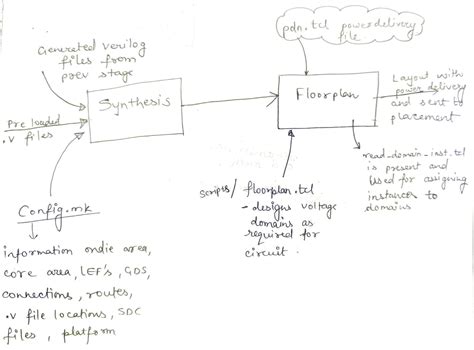 Generated verilog
files from
prev stage
Pre loaded
.v files
Synthesis
Config.mk
information on die area,
core area, LEF's, GDS,
connections, routes,
.v file locations, SDC
files, platform
pdn.tcl power delivery
file
Floorplan
Layout with
power delivery
and sent to
placement
read_domain_inst.tcl
is present and
used for assigning
instances to
domains
scripts/floorplan.tcl
- designs voltage
domains as
required for
circuit.